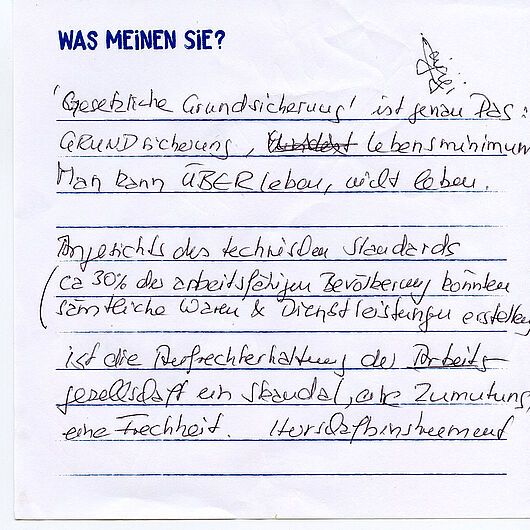 WAS MEINEN SIE?
'Gesetzliche Grundsicherung' ist genau Das:
GRUNDsicherung, Lebensminimum
Man kann ÜBERleben, nicht leben.
Angesichts des technischen Standards
(ca 30% der arbeitsfähigen Bevölkerung könnten
sämtliche Waren & Dienstleistungen erstellen
ist die Aufrechterhaltung der Arbeits-
gesellschaft ein Skandal, eine Zumutung,
eine Frechheit. Herrschaftsinstrument